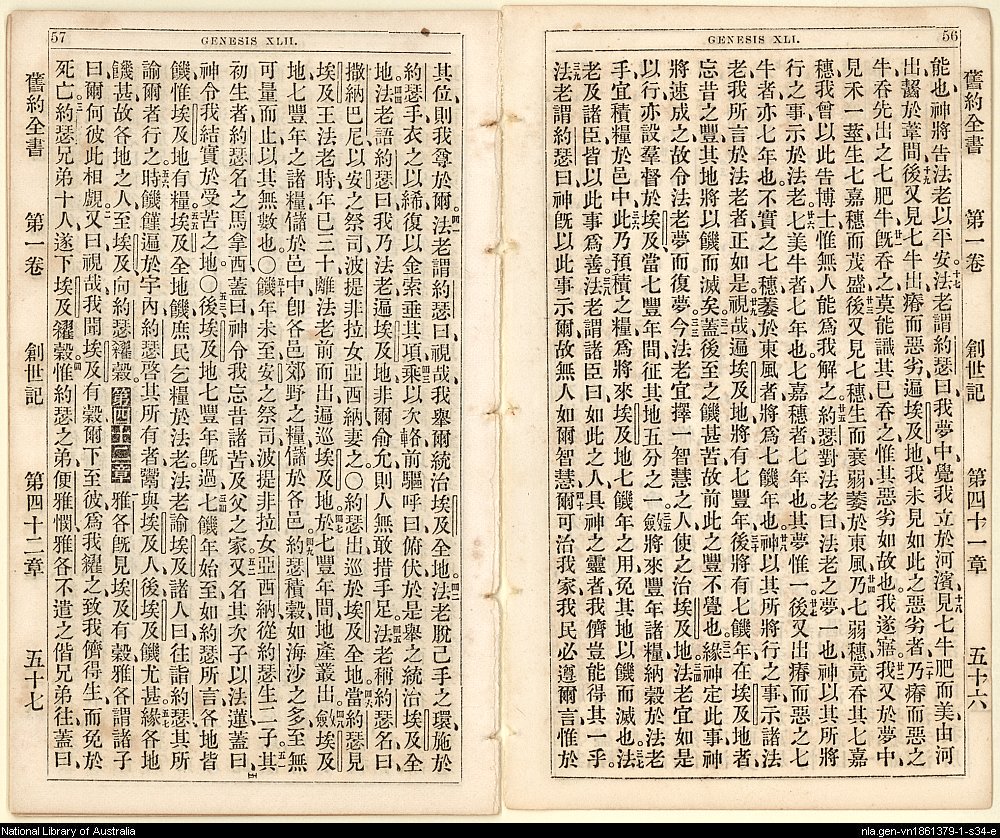 56
GENESIS XLI.
舊約全書 第一卷 創世記 第四十一章 五十六
能也神將告法老以平安、十七法老謂約瑟曰我夢中覺我立於河濱、十八見七牛肥而美由河
出齧於葦間、十九後又見七牛出瘠而惡劣遍埃及地我未見如此之惡劣者、二十乃瘠而惡之
牛吞先出之七肥牛、廿一旣吞之莫能識其已吞之惟其惡劣如故也我遂寤、廿二我又於夢中、
見禾一莖生七嘉穗而茂盛、廿三後又見七穗生而衰弱萎於東風、廿四乃七弱穗竟吞其七嘉
穗我曾以此告博士惟無人能爲我解之、廿五約瑟對法老曰法老之夢一也神以其所將
行之事示於法老、廿六七美牛者七年也七嘉穗者七年也其夢惟一、廿七後又出瘠而惡之七
牛者亦七年也不實之七穗萎於東風者將爲七饑年也、廿八神以其所將行之事示諸法
老我所言於法老者正如是、廿九視哉遍埃及地將有七豐年、三十後將有七饑年在埃及地者
忘昔之豐其地將以饑而滅矣、三一蓋後至之饑甚苦故前此之豐不覺也、三二緣神定此事神
將速成之故令法老夢而復夢、三三今法老宜擇一智慧之人使之治埃及地、三四法老宜如是
以行亦設羣督於埃及、當七豐年間、征其地五分之一、三五斂將來豐年諸糧納穀於法老
手宜積糧於邑中、三六此乃預積之糧爲將來埃及地七饑年之用免其地以饑而滅也、三七法
老及諸臣皆以此事爲善、三八法老謂諸臣曰如此之人具神之靈者我儕豈能得其一乎。
三九法老謂約瑟曰神旣以此事示爾故無人如爾智慧、四十爾可治我家、我民必遵爾言、惟於
57
GENESIS XLII.
其位、則我尊於爾、四一法老謂約瑟曰視哉我舉爾統治埃及全地、四二法老脫己手之環、施於
約瑟手、衣之以絺、復以金索垂其項、四三乘以次輅、前驅呼曰俯伏、於是舉之統治埃及全
地、四四法老語約瑟曰、我乃法老遍埃及地非爾俞允、則人無敢措手足、四五法老稱約瑟名曰
撒納巴尼以安之祭司波提非拉女亞西納妻之、〇約瑟出巡於埃及全地、四六當約瑟見
埃及王法老時、年已三十、離法老前而出遍巡埃及地、四七於七豐年間地產叢出、四八斂埃及
地七豐年之諸糧儲於邑中、卽各邑郊野之糧儲於各邑、四九約瑟積穀如海沙之多至無
可量而止、以其無數也、〇五十饑年未至、安之祭司波提非拉女亞西納從約瑟生二子、五一其
初生者約瑟名之馬拿西、蓋曰神令我忘昔諸苦及父之家、五二又名其次子以法蓮、蓋曰、
神令我結實於受苦之地、〇五三後埃及地七豐年旣過、五四七饑年始至如約瑟所言、各地皆
饑惟埃及地有糧、五五埃及全地饑、庶民乞糧於法老、法老諭埃及諸人曰、往詣約瑟、其所
諭爾者行之、五六時饑饉遍於宇內、約瑟啓其所有者鬻與埃及人、後埃及饑尤甚、五七緣各地
饑甚、故各地之人至埃及、向約瑟糴穀。第四十二章 一雅各旣見埃及有穀、雅各謂諸子
曰、爾何彼此相覷、二又曰、視哉我聞埃及有穀、爾下至彼、爲我糴之、致我儕得生、而免於
死亡、三約瑟兄弟十人、遂下埃及糴穀、四惟約瑟之弟便雅憫、雅各不遣之偕兄弟往、蓋曰、
舊約全書 第一卷 創世記 第四十二章 五十七
National Library of Australia
nla.gen-vn1861379-1-s34-e